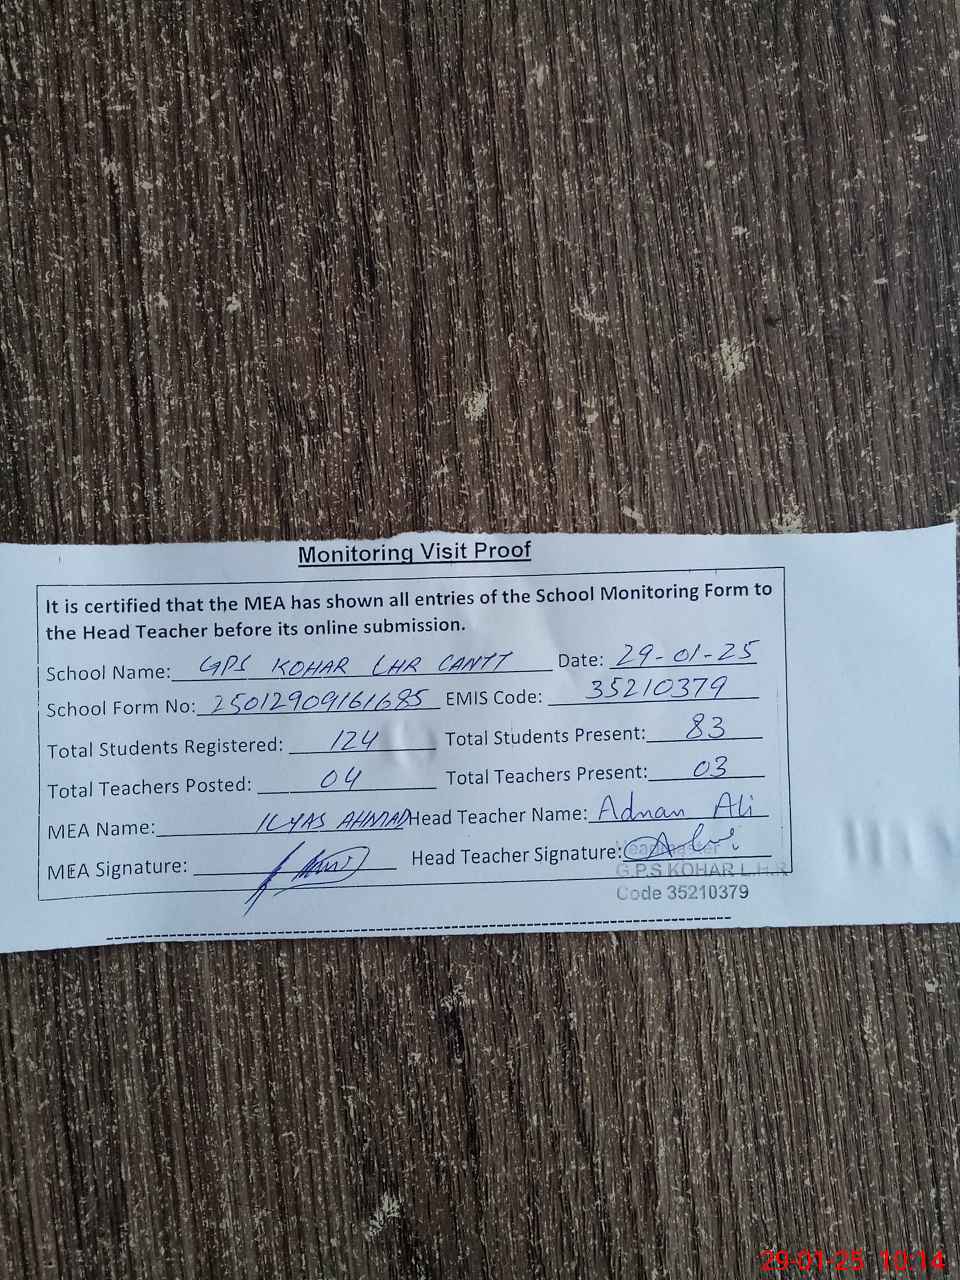 Monitoring Visit Proof
It is certified that the MEA has shown all entries of the School Monitoring Form to
the Head Teacher before its online submission.
School Name: GPS KOHAR LHR CANTT Date: 29-01-25
School Form No: 25012909161685 EMIS Code: 35210379
Total Students Registered: 124 Total Students Present: 83
Total Teachers Posted: 04 Total Teachers Present: 03
MEA Name: ILYAS AHMAD Head Teacher Name: Adnan Ali
MEA Signature: Head Teacher Signature:
Headmaster
G.P.S KOHAR L.H.R
Code 35210379
29-01-25 10:14